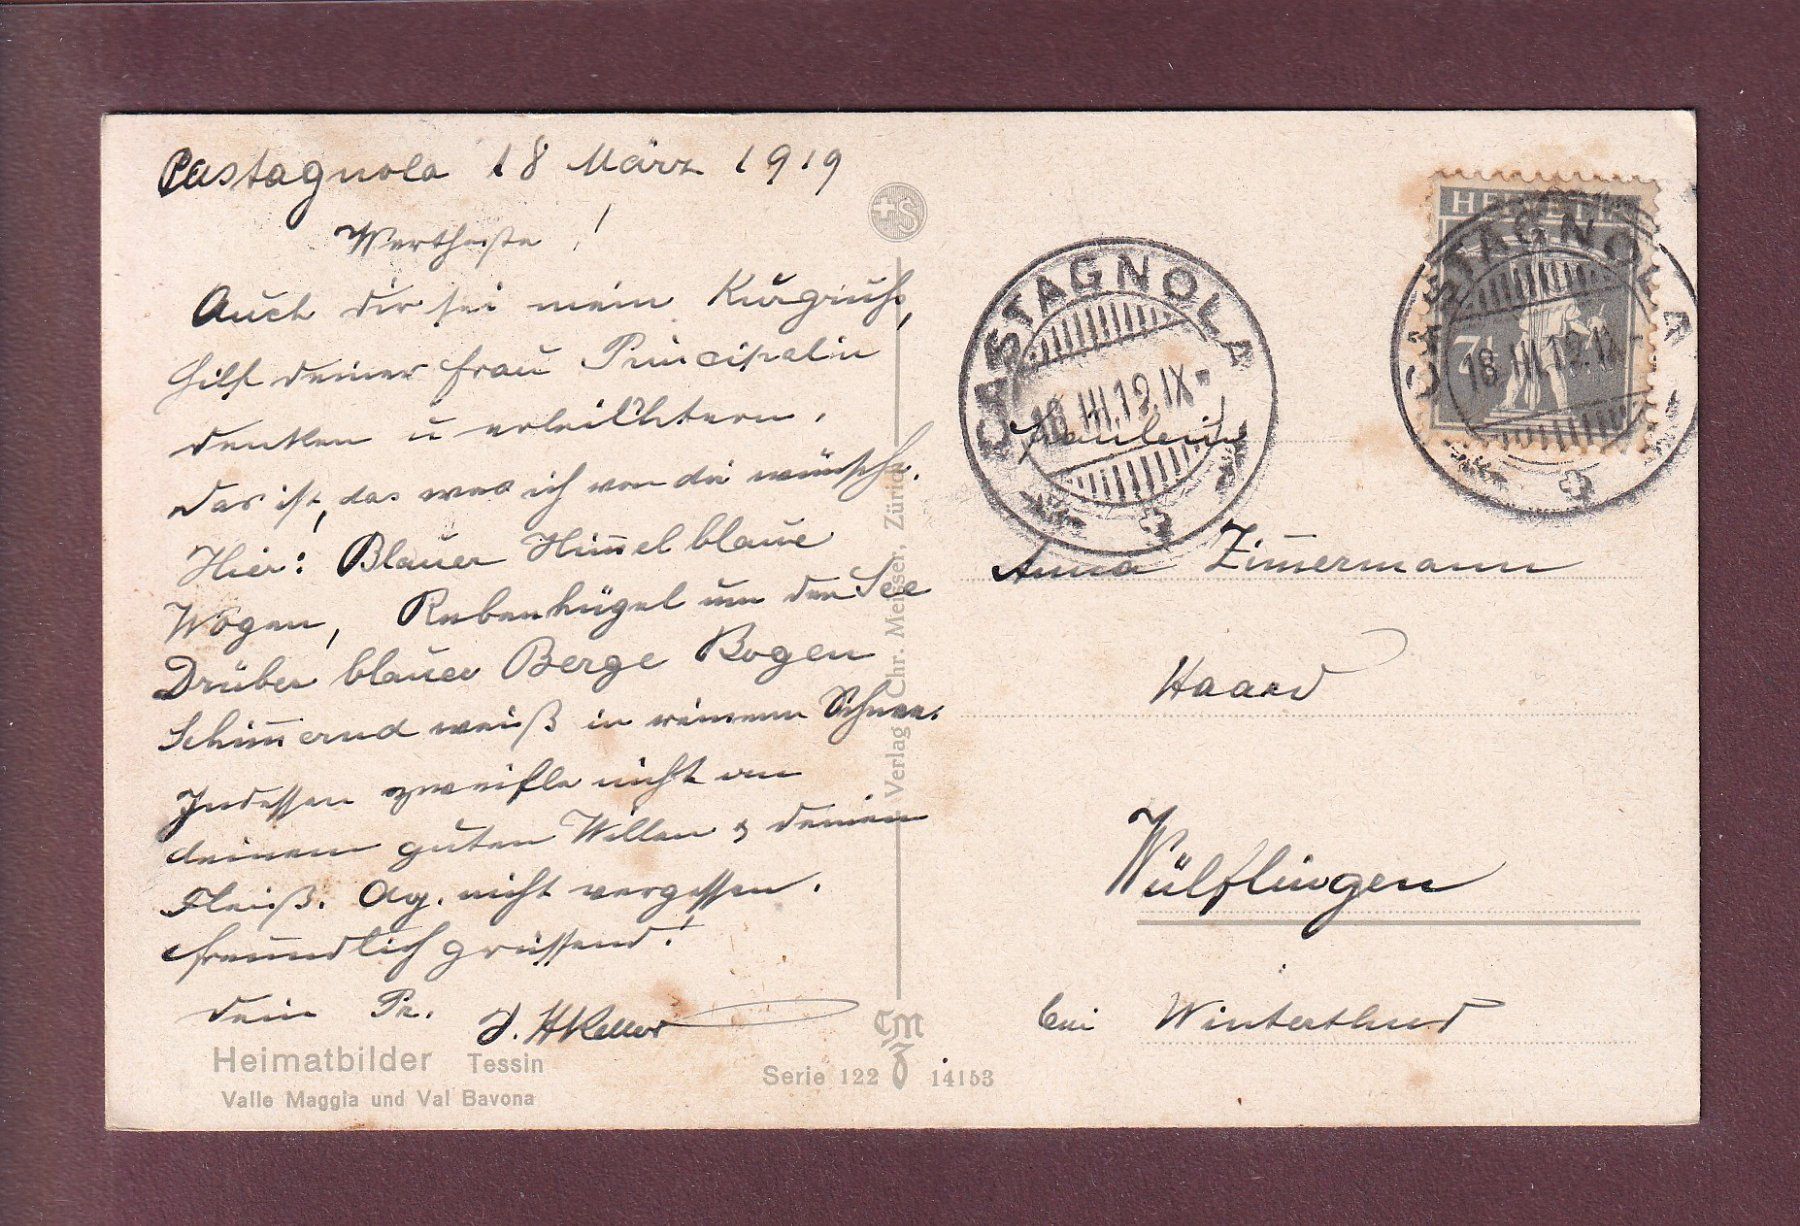 Castagnola 18 März 1919
Wertheste!
Auch dir sei mein Kurgruß,
hilf deiner Frau Principalin
denken u erleichtern.
Das ist, das was ich von dir wünsche.
Hier: Blauer Him̅el blaue
Wogen, Rebenhügel um den See
Drüber blauer Berge Bogen
Schim̅ernd weiß in reinem Schnee.
Indessen zweifle nicht an
deinem guten Willen & deinem
Fleiß. nicht vergessen.
Freundlich grüssend!
dein Pr. J. HKeller
Heimatbilder Tessin
Valle Maggia und Val Bavona
Serie 122 CMZ 14153
Verlag Chr. Meisser, Zürich
+S
HELVETIA
7½
CASTAGNOLA
18.III.19.IX
CASTAGNOLA
18.III.19.IX
Fräulein
Anna Zim̅ermann
Haard
Wülflingen
bei Winterthur